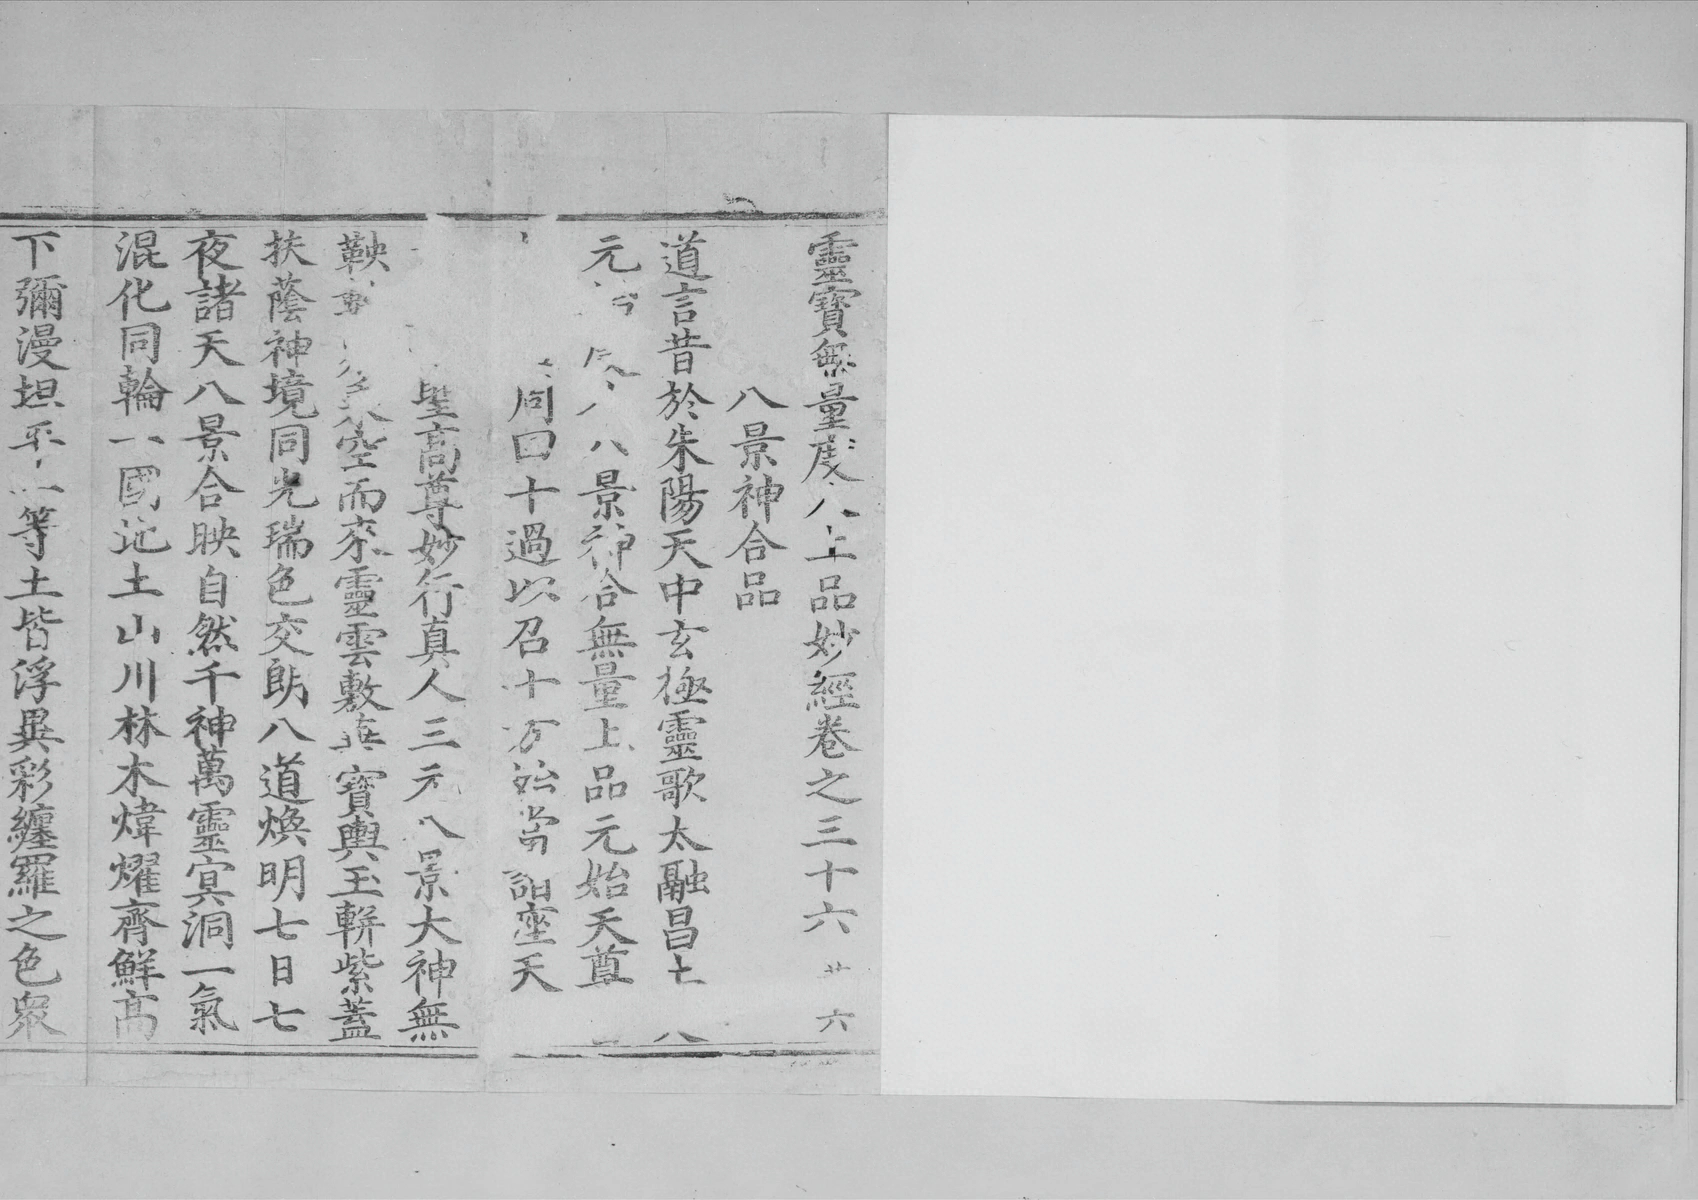 靈寶無量度人上品妙經卷之三十六 六
八景神合品
道言昔於朱陽天中玄極靈歌太融昌 八
元 八景神合無量上品元始天尊
周回十過以召十方始當詣座天
聖高尊妙行真人三元八景大神無
鞅 衆乘空而來靈雲敷 寶輿玉輧紫蓋
扶蔭神境同光瑞色交朗八道煥明七日七
夜諸天八景合映自然千神萬靈寘洞一氣
混化同輪一國地土山川林木煒燿齊鮮高
下彌漫坦平一等土皆浮異彩纏羅之色眾